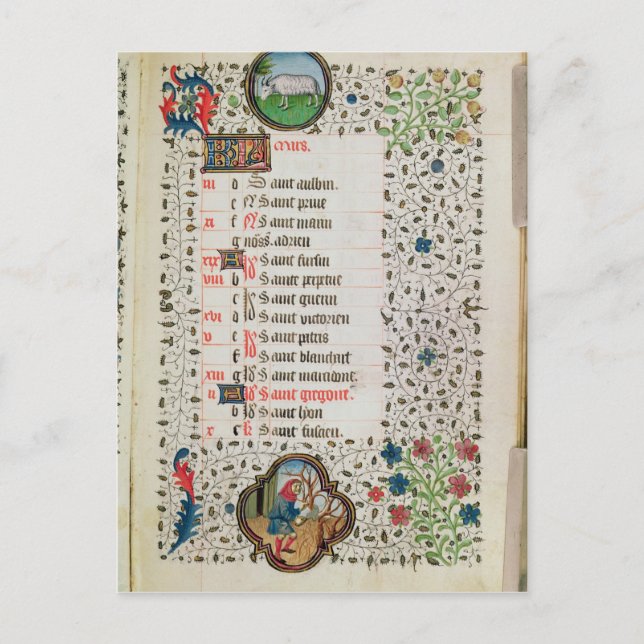 KL Mars.
iii d Saint aulbin.
e N Saint prive
xi f N Saint marin
g nōs s. adrien
xix A Id Saint fursin
viii b Id Sainte perpetue
c Id Saint guerin
xvi d Id Saint victorien
v e Id Saint patris
f Id Saint blanchart
xiii g Id Saint macidone.
ii A Id Saint gregoire.
b Id Saint lyon
x c Id Saint fuscien.